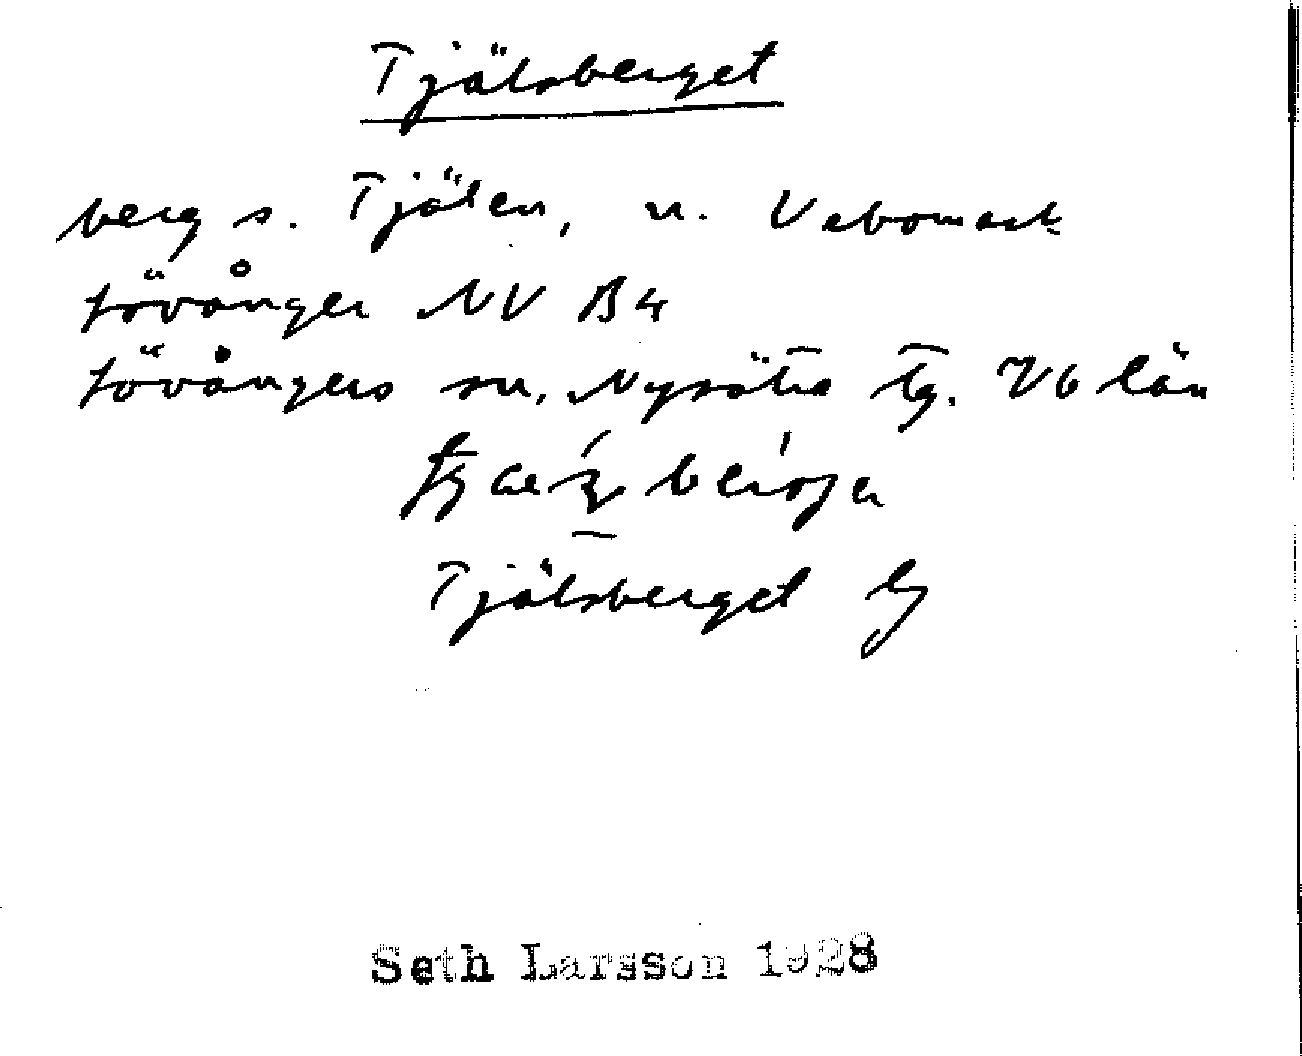 Tjälsberget
berg s. Tjälen, n. Vebomark
Lövånger NV B4
Lövångers sn. Nysätra tg. Vb län
Tjälsberget
Seth Larsson 1928